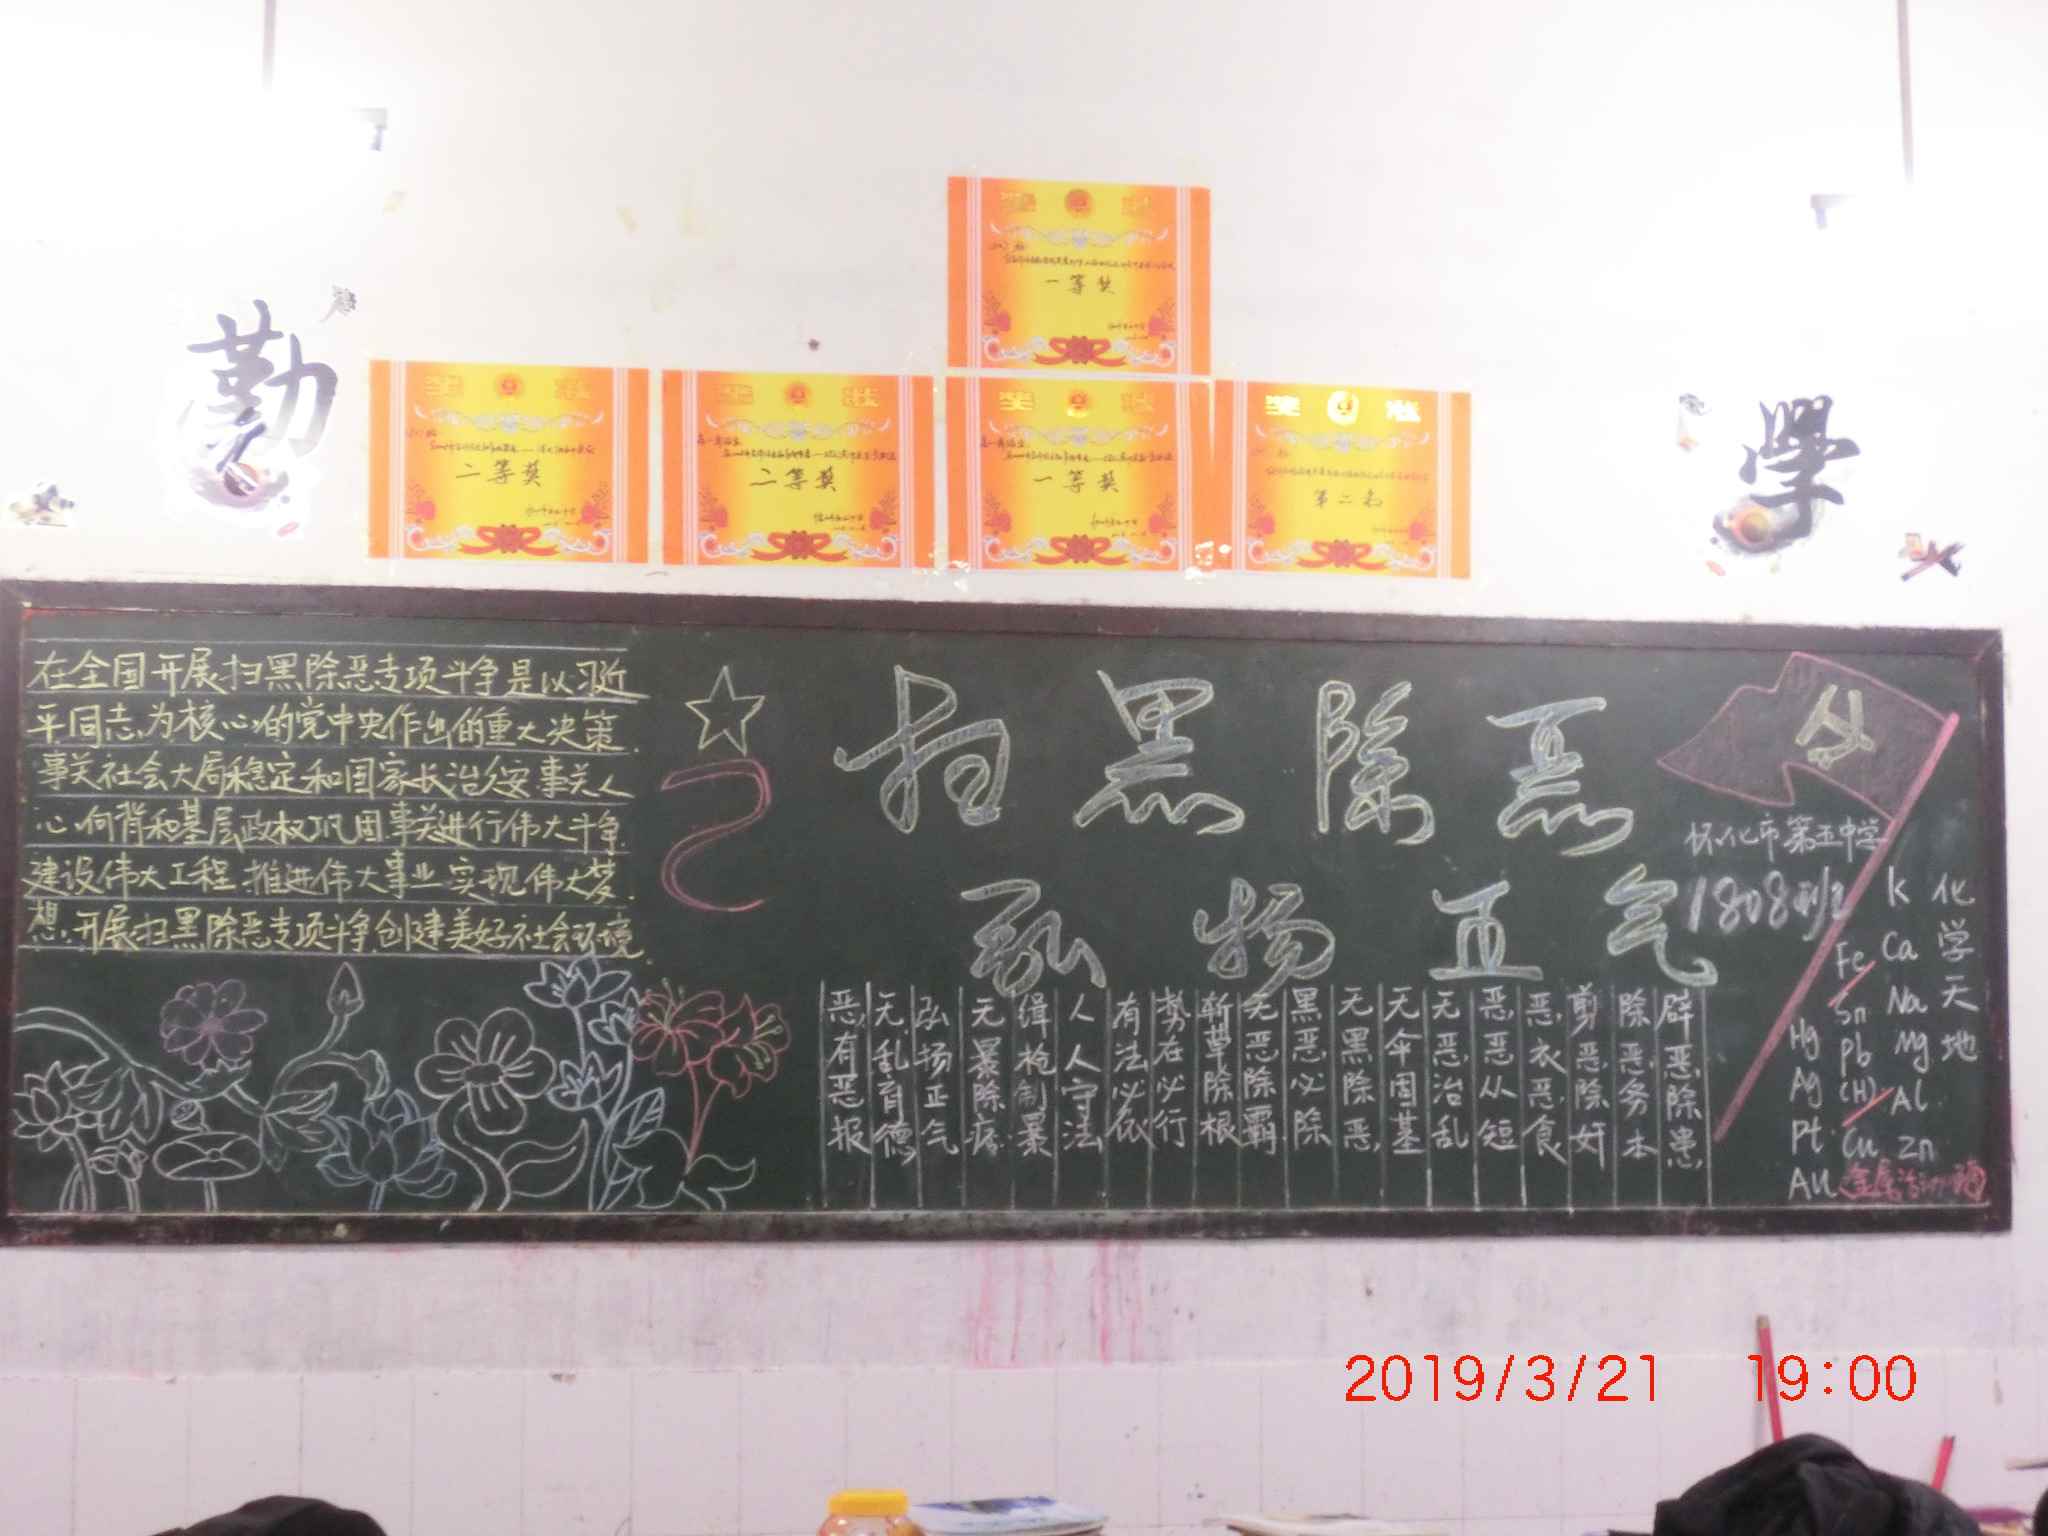 勤
学
一等奖
二等奖
二等奖
一等奖
第二名
在全国开展扫黑除恶专项斗争是以习近
平同志为核心的党中央作出的重大决策.
事关社会大局稳定和国家长治久安事关人
心向背和基层政权巩固.事关进行伟大斗争.
建设伟大工程.推进伟大事业.实现伟大梦.
想.开展扫黑除恶专项斗争创建美好社会环境.
扫黑除恶
弘扬正气
怀化市第五中学
1808班
辟恶除患,
除恶务本
剪恶除奸
恶衣恶食
恶恶从短
无恶治乱
无伞固基
无黑除恶,
黑恶必除
无恶除霸
斩草除根
势在必行
有法必依
人人守法
缉枪制暴
弘扬正气
恶有恶报
化学天地
K
Ca
Na
Mg
Al
Zn
Fe
Sn
Pb
(H)
Cu
Hg
Ag
Pt
Au
2019/3/21 19:00